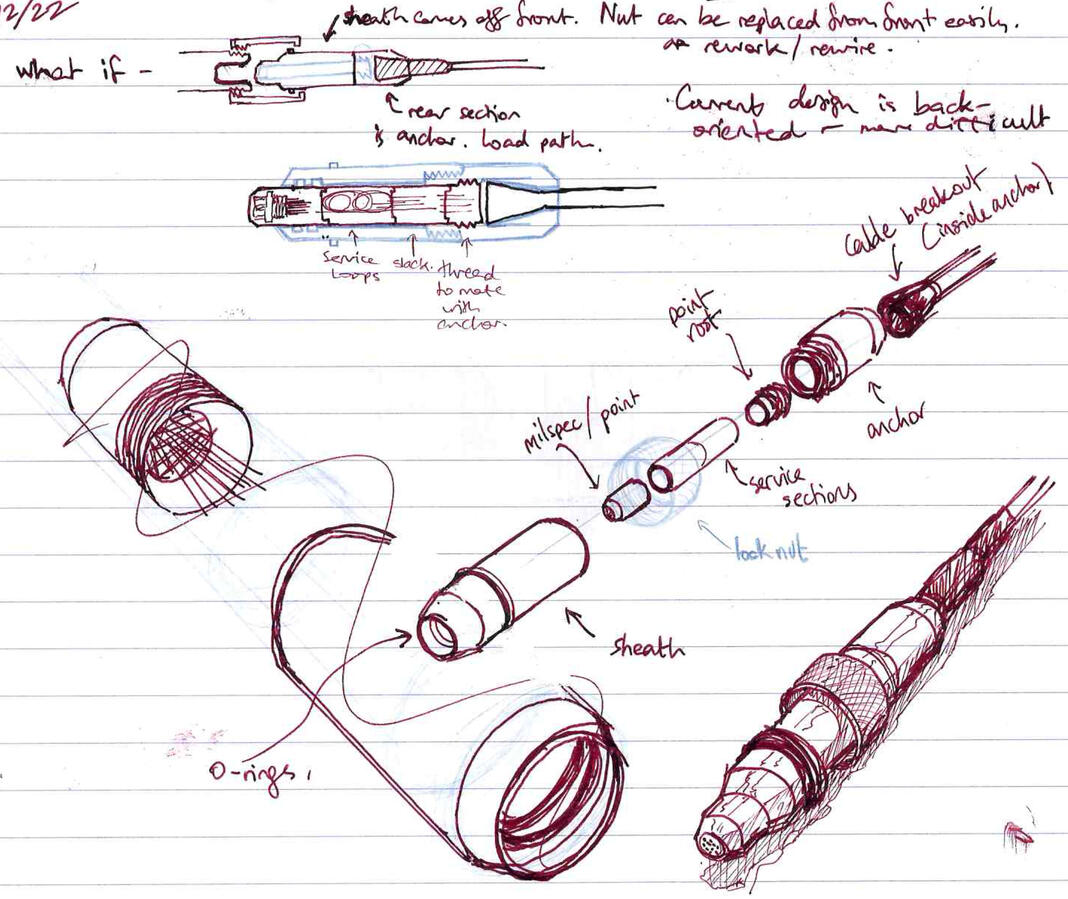 2/22
sheath comes off front. Nut can be replaced from front easily.
or rework/rewire.
what if -
rear section
is anchor. Load path.
· Current design is back-
oriented - more difficult
service
loops
slack.
thread
to mate
with
anchor.
cable breakout
(inside anchor)
point
root
anchor
milspec/point
service
sections
lock nut
sheath
O-rings.